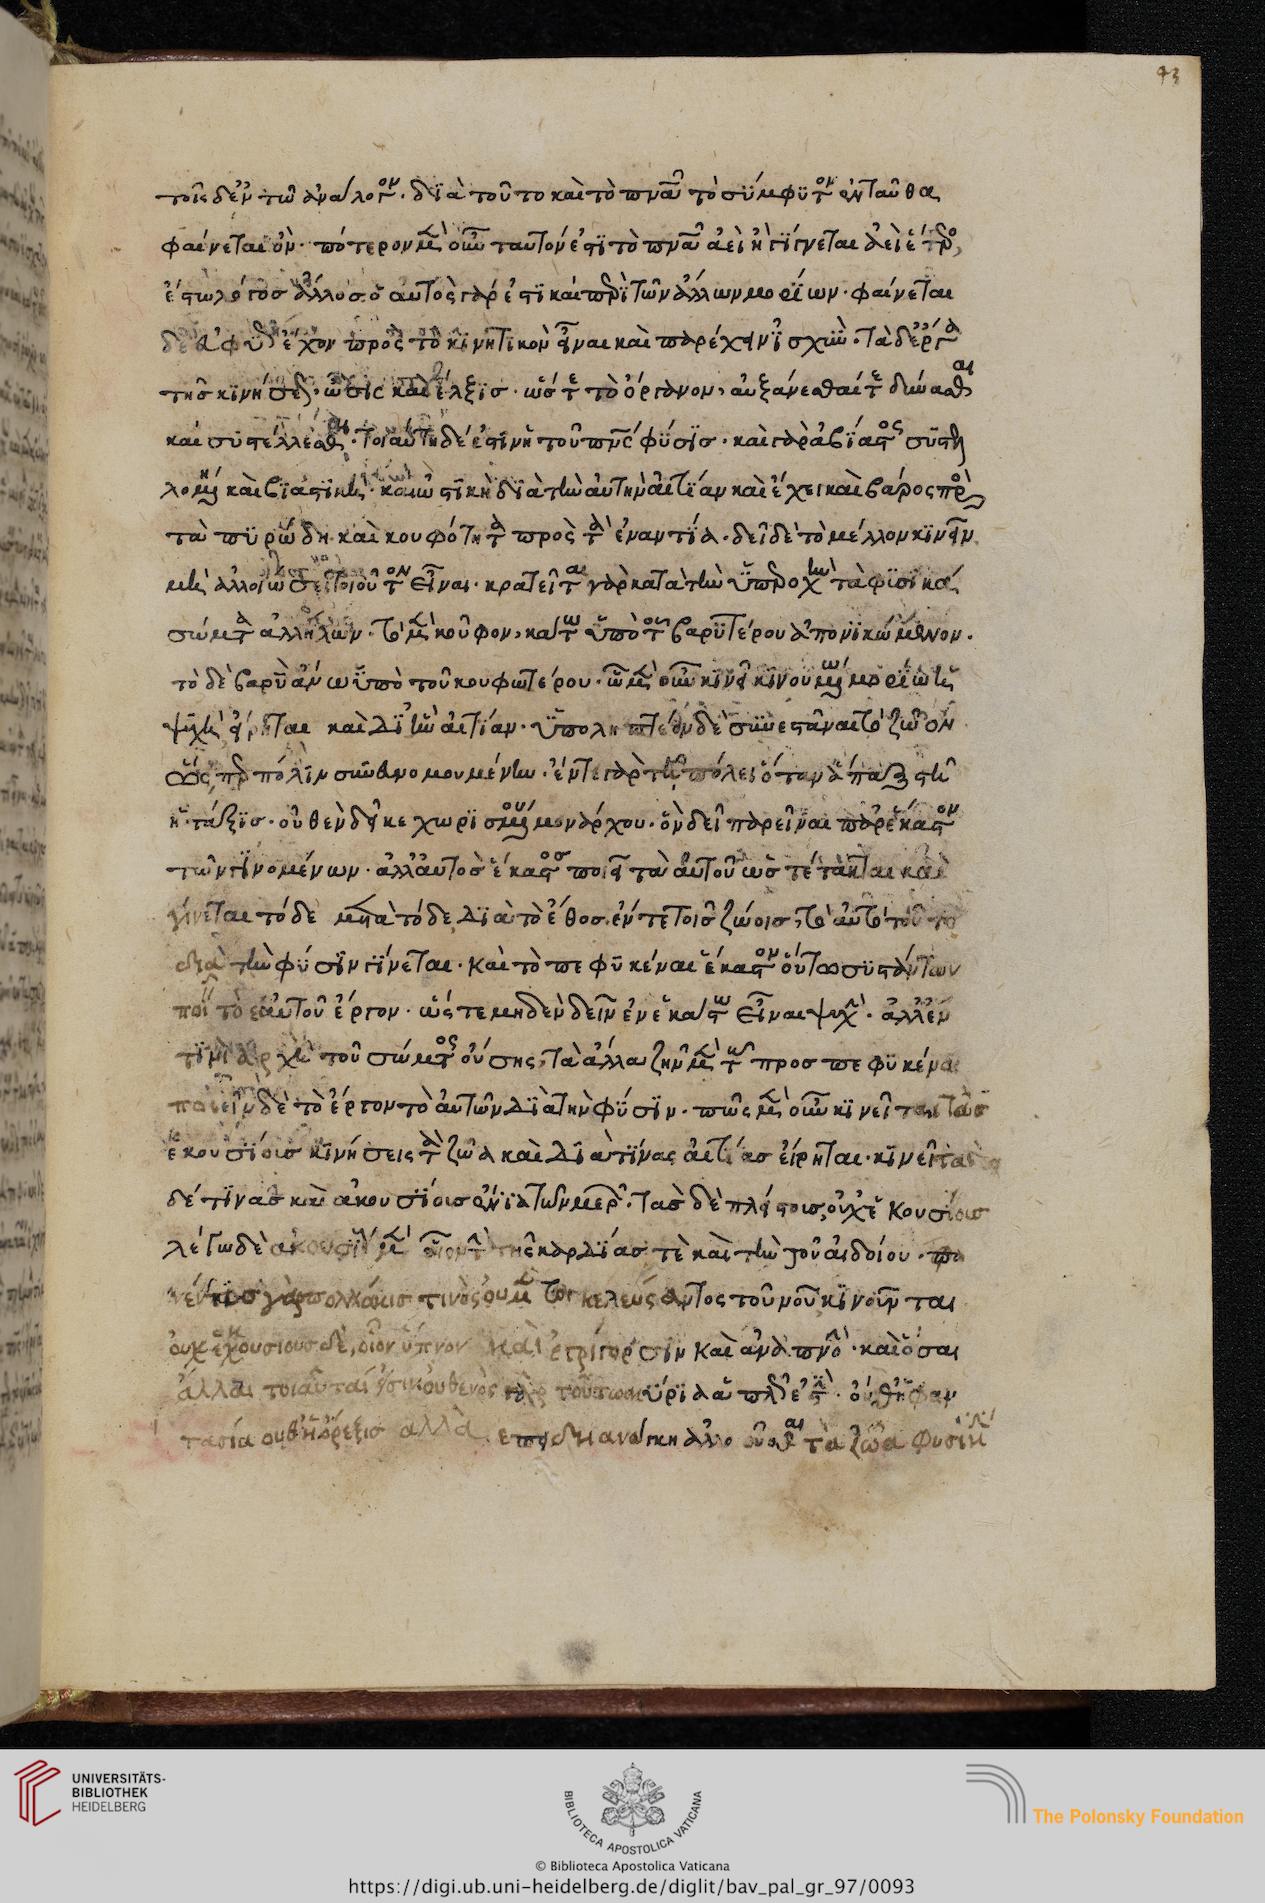 93
τοῖς δ' ἐν τῷ ἀνάλογον · διὰ τοῦτο καὶ τὸ πνᾶ τὸ σύμφυτον ἐνταῦθα
φαίνεται ὄν · πότερον μὲν οὖν ταυτόν ἐστι τὸ πνᾶ ἀεὶ ἢ γίγνεται ἀεὶ ἕτερον,
ἔστω λόγος ἄλλος · ὁ αὐτὸς γάρ ἐστι καὶ περὶ τῶν ἄλλων μορίων · φαίνεται
δὲ εὐφυῶς ἔχον πρὸς τὸ κινητικὸν εἶναι καὶ παρέχειν ἰσχύν · τὰ δὲ ἔργα
τῆς κινήσεως · ὦσις καὶ ἕλξις · ὥστε τὸ ὄργανον, αὐξάνεσθαί τε δύνασθαι
καὶ συστέλλεσθαι · τοιαύτη δέ ἐστιν ἡ τοῦ πνς φύσις · καὶ γὰρ ἀβίαστος συστελ
λομένη καὶ βιαστικὴ · καὶ ὠστικὴ διὰ τὴν αὐτὴν αἰτίαν καὶ ἔχει καὶ βάρος πρὸς
τὰ πυρώδη καὶ κουφότητα πρὸς τὰ ἐναντία · δεῖ δὲ τὸ μέλλον κινεῖν
μὴ ἀλλοιώσει τοιοῦτον εἶναι · κρατεῖται γὰρ κατὰ τὴν ὑπεροχὴν τὰ φυσικὰ
σώματα ἀλλήλων · τὸ μὲν κοῦφον, κάτω ὑπὸ τοῦ βαρυτέρου ἀπονικώμενον ·
τὸ δὲ βαρὺ ἄνω ὑπὸ τοῦ κουφωτέρου · ὧ μὲν οὖν κινεῖ κινουμένῳ μορίῳ ἡ
ψυχὴ εἴρηται καὶ δι' ἣν αἰτίαν · ὑποληπτέον δὲ συνεστάναι τὸ ζῶον
ὥσπερ πόλιν εὖ νομουμένην · ἔν τε γὰρ τῇ πόλει ὅταν ἅπαξ στῇ
ἡ τάξις · οὐθὲν δεῖ κεχωρισμένου μονάρχου · ὃν δεῖ παρεῖναι παρ' ἕκαστον
τῶν γινομένων · ἀλλ' αὐτὸς ἕκαστος ποιεῖ τὰ αὑτοῦ ὡς τέτακται καὶ
γίνεται τόδε μετὰ τόδε διὰ τὸ ἔθος · ἔν τε τοῖς ζώοις, τὸ αὐτὸ τοῦτο
διὰ τὴν φύσιν γίνεται · καὶ τὸ πεφυκέναι ἕκαστον οὕτω συστάντων
ποιεῖ τὸ ἑαυτοῦ ἔργον · ὥστε μηδὲν δεῖν ἐν ἑκάστω εἶναι ψυχὴν · ἀλλ' ἔν
τινι ἀρχῇ τοῦ σώματος οὔσης, τὰ ἄλλα ζῆν μὲν τῷ προσπεφυκέναι
ποιεῖν δὲ τὸ ἔργον τὸ αὑτῶν διὰ τὴν φύσιν · πῶς μὲν οὖν κινεῖται τὰς
ἑκουσίοις κινήσεις τὰ ζῶα καὶ διὰ τίνας αἰτίας εἴρηται · κινεῖται
δέ τινας καὶ ἀκουσίοις ἔνια τῶν μερῶν · τὰς δὲ πλείστοις, οὐχ ἑκουσίοις
λέγω δὲ ἀκουσίους μὲν οἷον τὴν τῆς καρδίας τὲ καὶ τὴν τοῦ αἰδοίου ·
γὰρ πολλάκις τινὸς οὐ μέντοι κελεύσαντος τοῦ νοῦ κινοῦνται
οὐχ ἑκουσίους δὲ, οἷον ὕπνον καὶ ἐγρήγορσιν καὶ ἀναπνοὴ · καὶ ὅσαι
ἄλλαι τοιαῦταί εἰσιν · οὐθενὸς γὰρ τούτων κυρία ἁπλῶς ἐστὶν · οὔθ' ἡ φαν
τασία οὔθ' ἡ ὄρεξις ἀλλὰ ἐπειδὴ ἀνάγκη ἀλλοιοῦσθαι τὰ ζῶα φυσικὴν
UNIVERSITÄTS-
BIBLIOTHEK
HEIDELBERG
BIBLIOTECA APOSTOLICA VATICANA
The Polonsky Foundation
© Biblioteca Apostolica Vaticana
https://digi.ub.uni-heidelberg.de/diglit/bav_pal_gr_97/0093